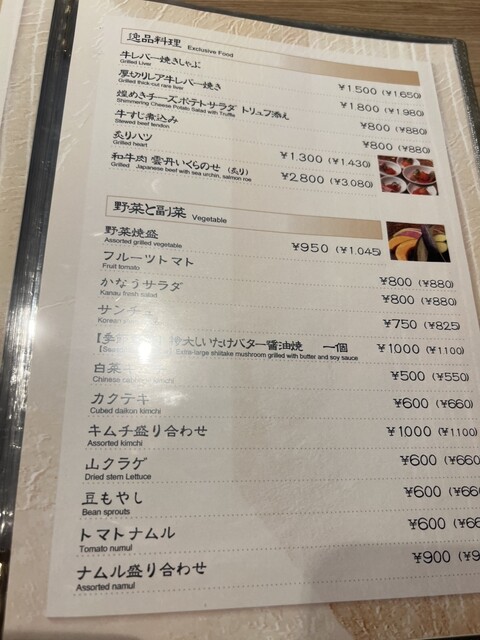 逸品料理 Exclusive Food
牛レバー焼きしゃぶ ¥1,500 (¥1,650)
Grilled Liver
厚切りレア牛レバー焼き ¥1,800 (¥1,980)
Grilled thick-cut rare liver
煌めきチーズポテトサラダ トリュフ添え ¥800 (¥880)
Shimmering Cheese Potato Salad with Truffle
牛すじ煮込み ¥800 (¥880)
Stewed beef tendon
炙りハツ ¥1,300 (¥1,430)
Grilled heart
和牛肉 雲丹いくらのせ (炙り) ¥2,800 (¥3,080)
Grilled Japanese beef with sea urchin, salmon roe
野菜と副菜 Vegetable
野菜焼盛 ¥950 (¥1,045)
Assorted grilled vegetable
フルーツトマト ¥800 (¥880)
Fruit tomato
かなうサラダ ¥800 (¥880)
Kanau fresh salad
サンチュ ¥750 (¥825)
Korean
【季節 特大しいたけバター醤油焼 一個 ¥1000 (¥1100)
Extra-large shiitake mushroom grilled with butter and soy sauce
白菜キムチ ¥500 (¥550)
Chinese cabbage kimchi
カクテキ ¥600 (¥660)
Cubed daikon kimchi
キムチ盛り合わせ ¥1000 (¥1100)
Assorted kimchi
山クラゲ ¥600 (¥660
Dried stem Lettuce
豆もやし ¥600 (¥66
Bean sprouts
トマトナムル ¥600 (¥66
Tomato numul
ナムル盛り合わせ ¥900 (¥9
Assorted namul